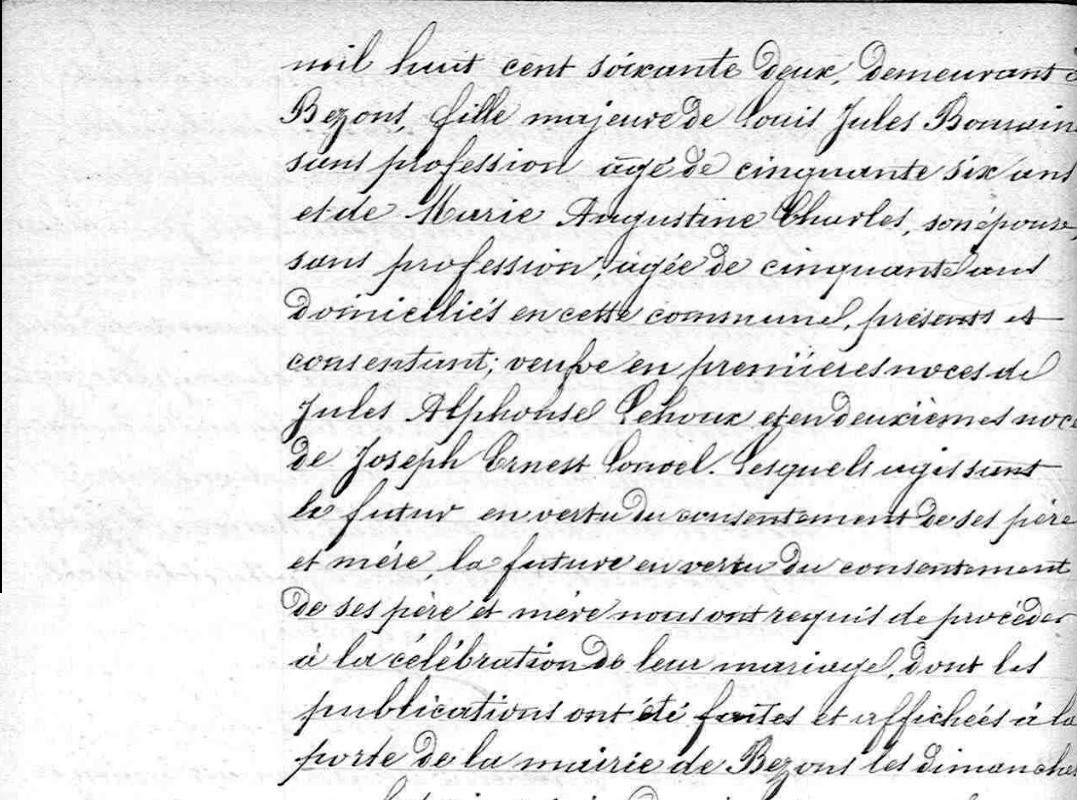 mil huit cent soixante deux, demeurant à
Bezons, fille majeure de Louis Jules
sans profession âgé de cinquante six ans
et de Marie Augustine Charles, son épouse,
sans profession, âgée de cinquante ans
domiciliés en cette commune, présents et
consentant; veufve en premières noces de
Jules Alphonse Lehoux et en deuxièmes noce
de Joseph Ernest Louvel. Lesquels agissant
le futur en vertu du consentement de ses père
et mère, la future en vertu du consentement
de ses père et mère nous ont requis de procéder
à la célébration de leur mariage, dont les
publications ont été faites et affichées à la
porte de la mairie de Bezons les dimanches